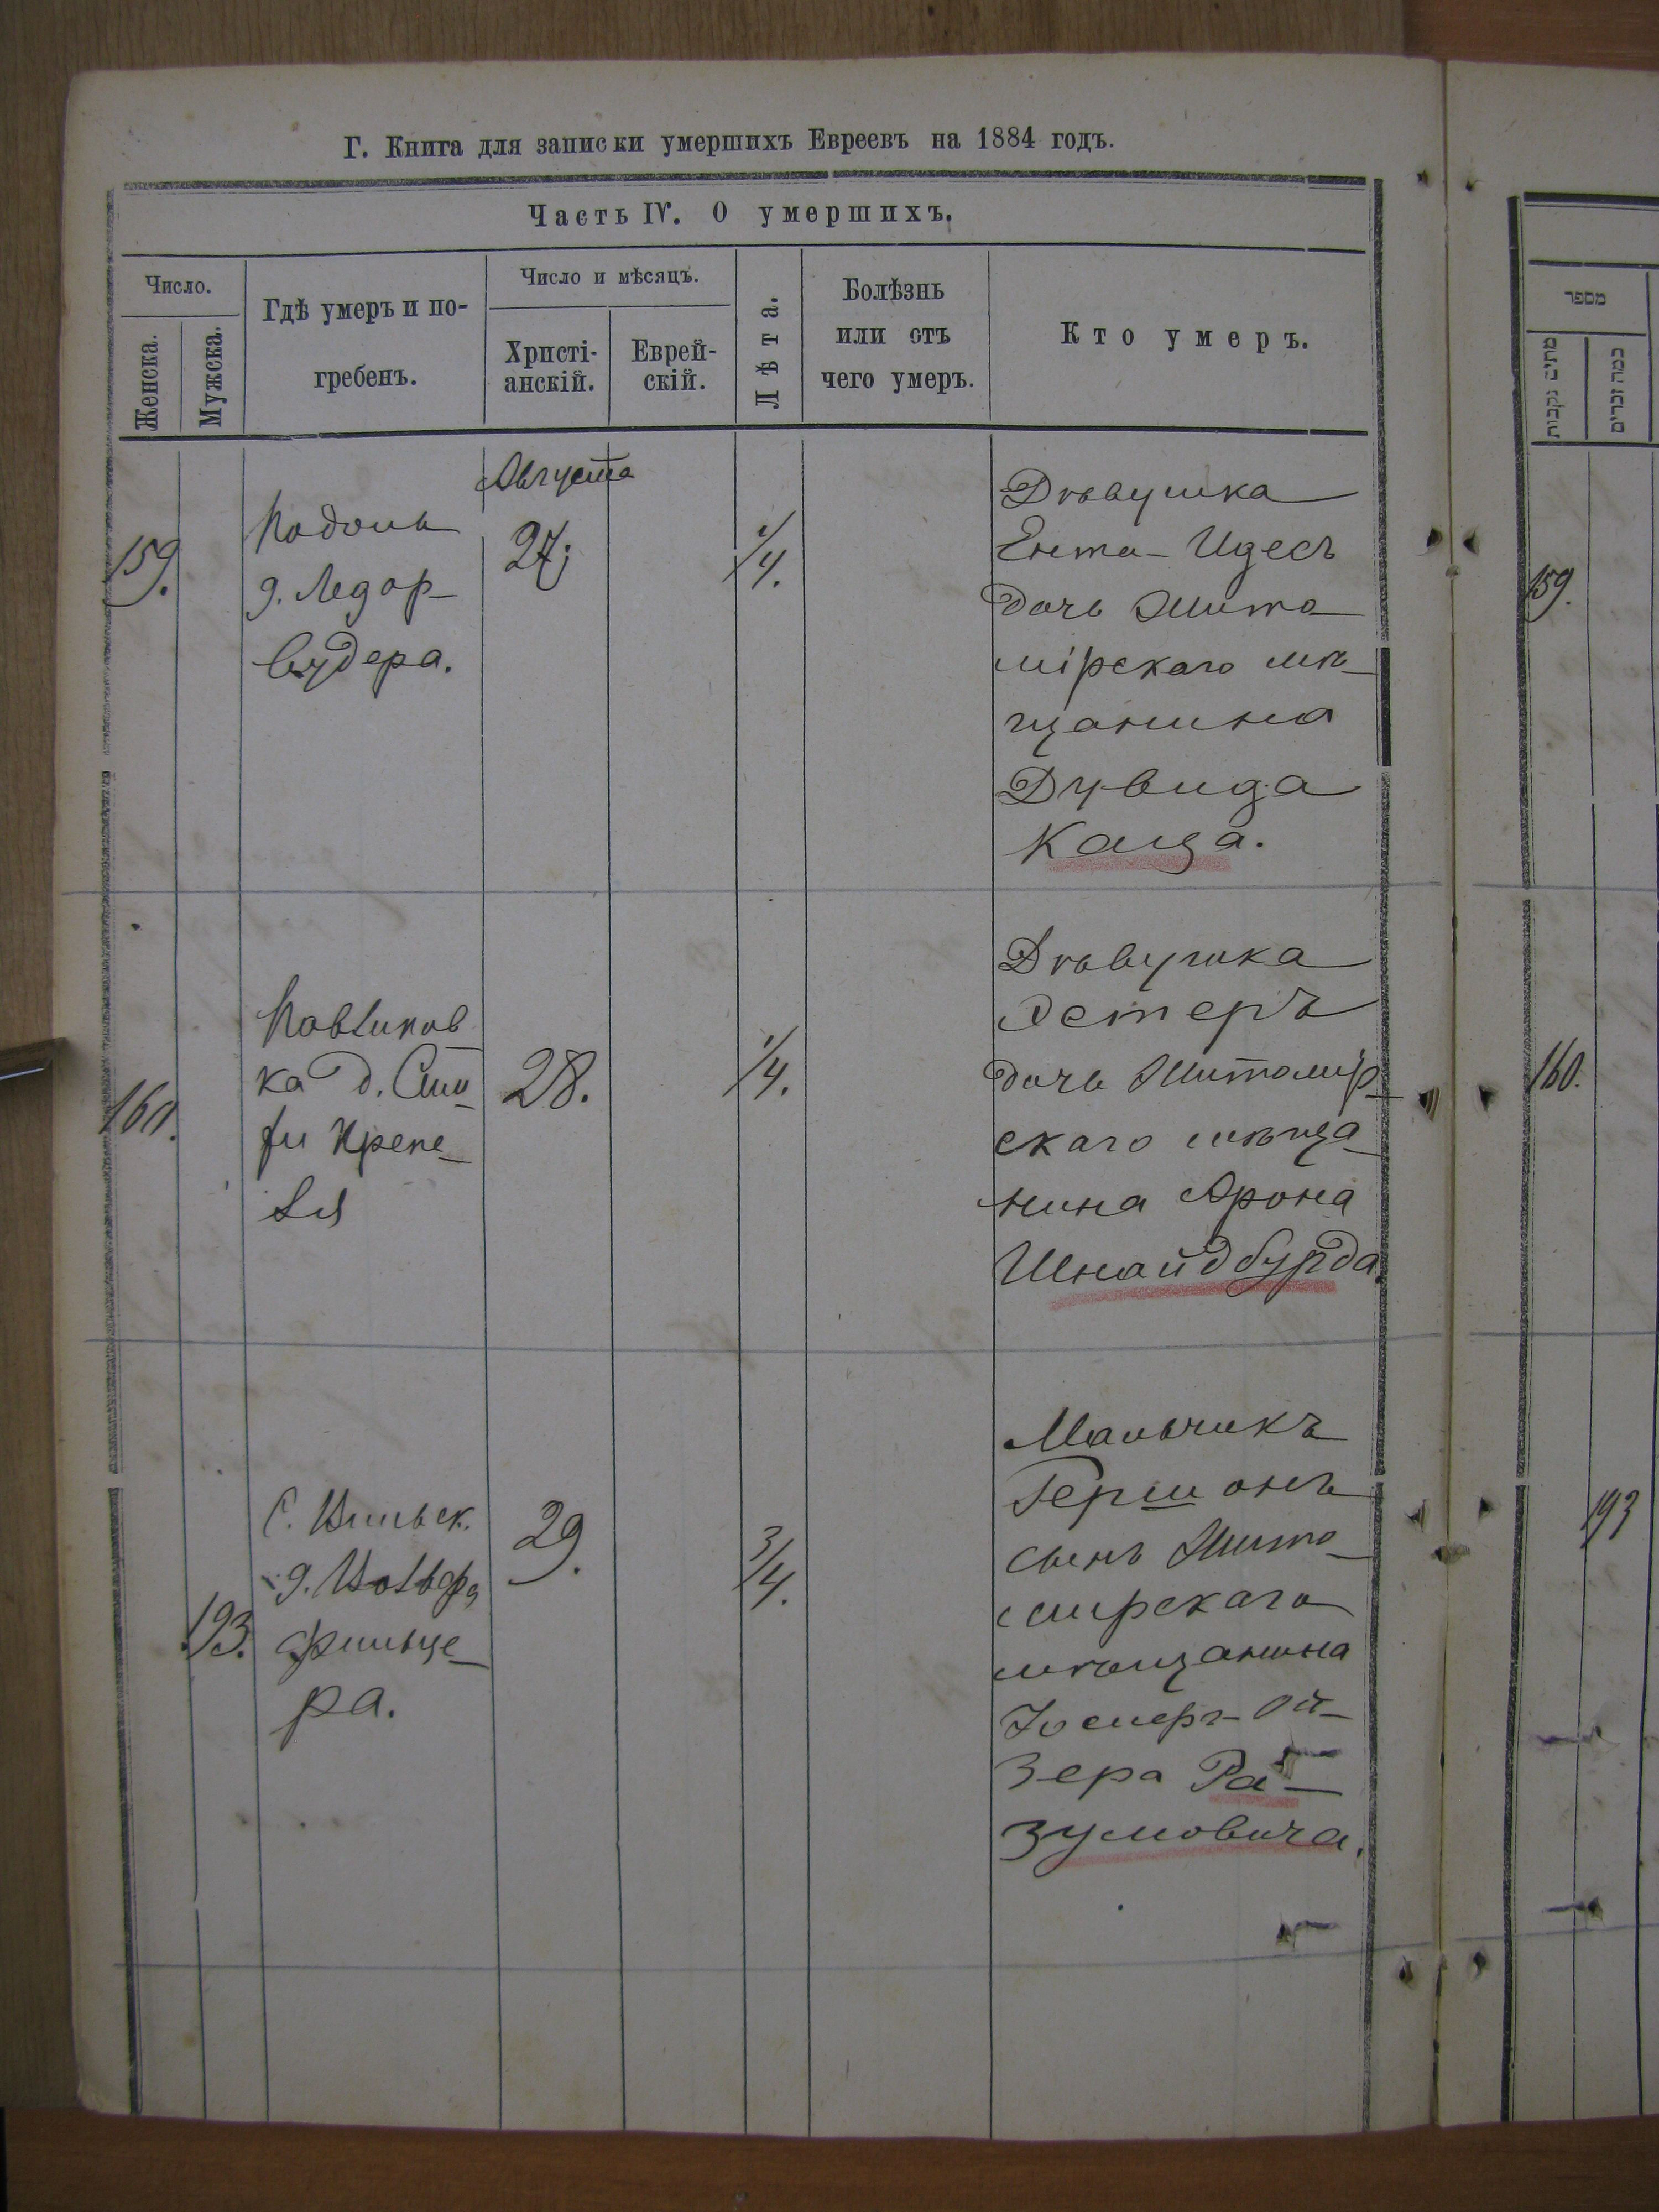 Г. Книга для записки умершихъ Евреевъ на 1884 годъ.
Часть IV. О умершихъ.
Число.
Женска.
Мужска.
Гдѣ умеръ и по-
гребенъ.
Число и мѣсяцъ.
Христі-
анскій.
Еврей-
скій.
Лѣта.
Болѣзнь
или отъ
чего умеръ.
Кто умеръ.
159.
Подоль
д. Ледер-
вудера.
Августа
27;
1/4.
Дѣвушка
Ента-Идесъ
дочь Жито-
мірскаго мѣ-
щанина
Дувида
Каца.
160.
Павликов
ка д.
28.
1/4.
Дѣвушка
Эстеръ
дочь Житомір-
скаго мѣща-
нина Арона
Шнайдбурда.
193.
С. Вильск.
29.
3/4.
Мальчикъ
Гершонъ
сынъ Жито-
мирскаго
мѣщанина
Іосифъ-Ой-
зера Ра-
зумовича.
מספר
מתים נקבות
כמה זכרים
159.
160.
193